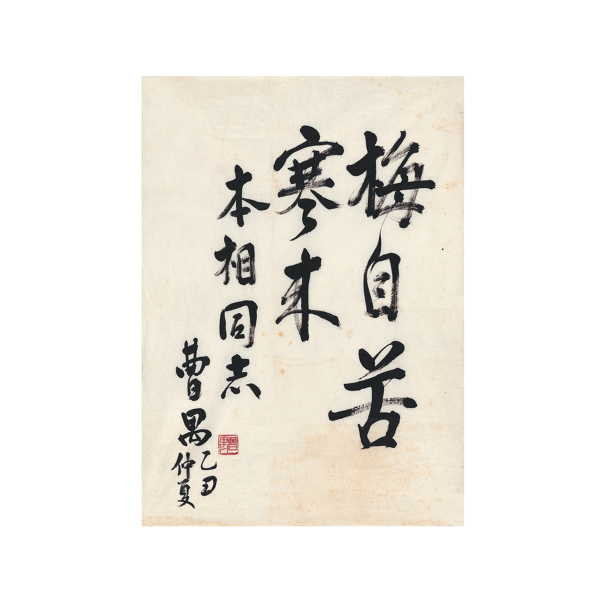 梅自苦
寒来
本相同志
曹禺
乙丑
仲夏